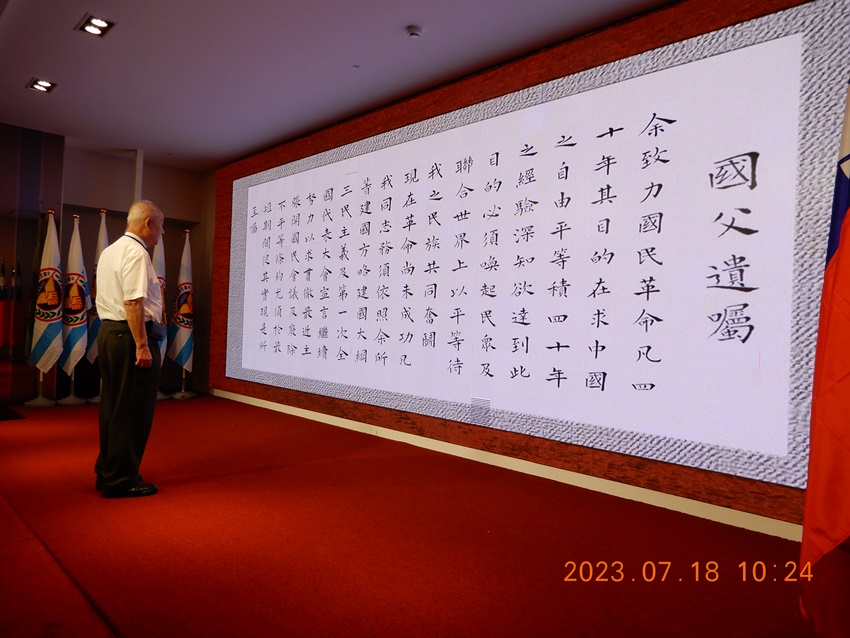 國父遺囑
余致力國民革命凡四
十年其目的在求中國
之自由平等積四十年
之經驗深知欲達到此
目的必須喚起民眾及
聯合世界上以平等待
我之民族共同奮鬪
現在革命尚未成功凡
我同志務須依照余所
著建國方略建國大綱
三民主義及第一次全
國代表大會宣言繼續
努力以求貫徹最近主
張開國民會議及廢除
不平等條約尤須於最
短期間促其實現是所
至囑
2023.07.18 10:24